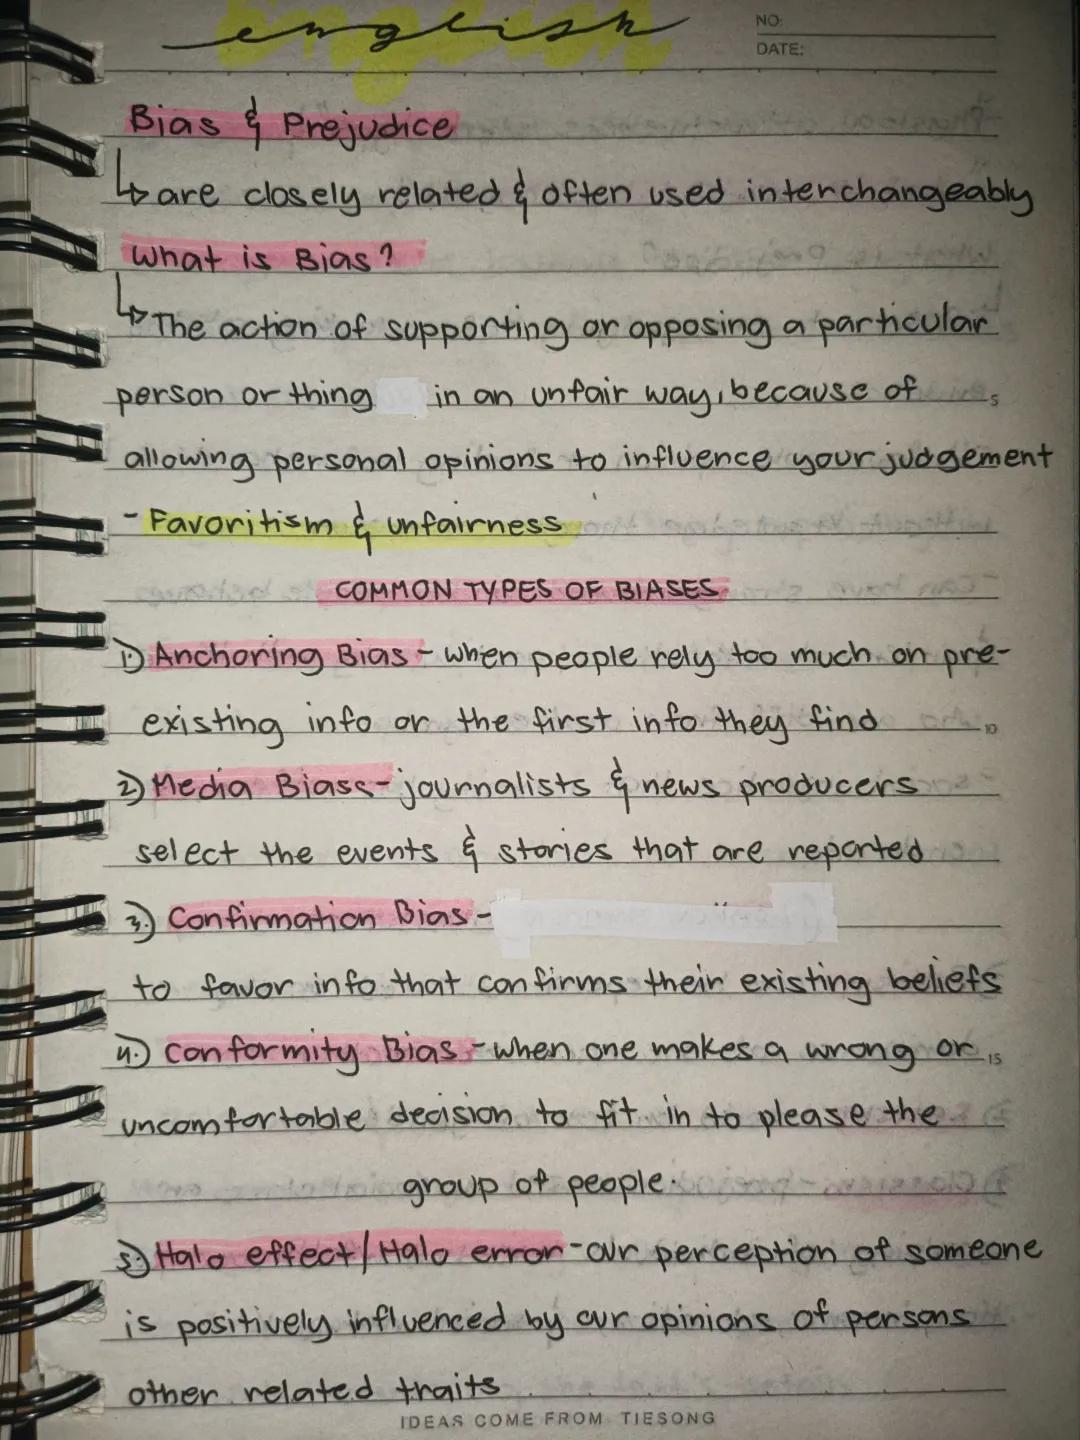 english
NO:
DATE:
Bias & Prejudice
↳ are closely related & often used interchangeably
What is Bias?
↳ The action of supporting or opposing a particular
person or thing in an unfair way, because of
5
allowing personal opinions to influence your judgement
- Favoritism & unfairness
COMMON TYPES OF BIASES
1.) Anchoring Bias - when people rely too much on pre-
existing info or the first info they find
10
2) Media Biass - journalists & news producers
select the events & stories that are reported
3.) Confirmation Bias -
to favor info that confirms their existing beliefs
4.) Conformity Bias - when one makes a wrong or
15
uncomfortable decision to fit in to please the
group of people.
5.) Halo effect/Halo error - our perception of someone
is positively influenced by our opinions of persons
other related traits
IDEAS COME FROM TIESONG